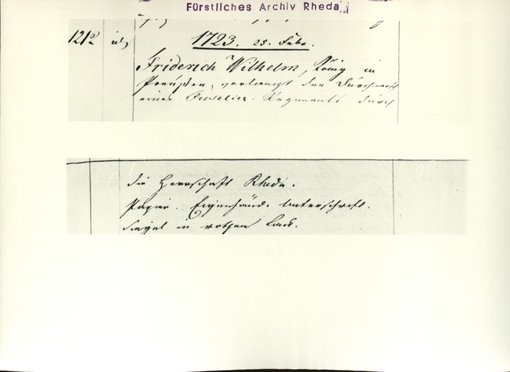 Fürstliches Archiv Rheda
1212
1723. 23. Febr.
Friderich Wilhelm, König in
Preußen, verlangt den Durchmarsch
eines Fuselier-Regiments durch
die Herrschaft Rheda.
Papier. Eigenhänd. Unterschrift.
Siegel in rothem Lack.